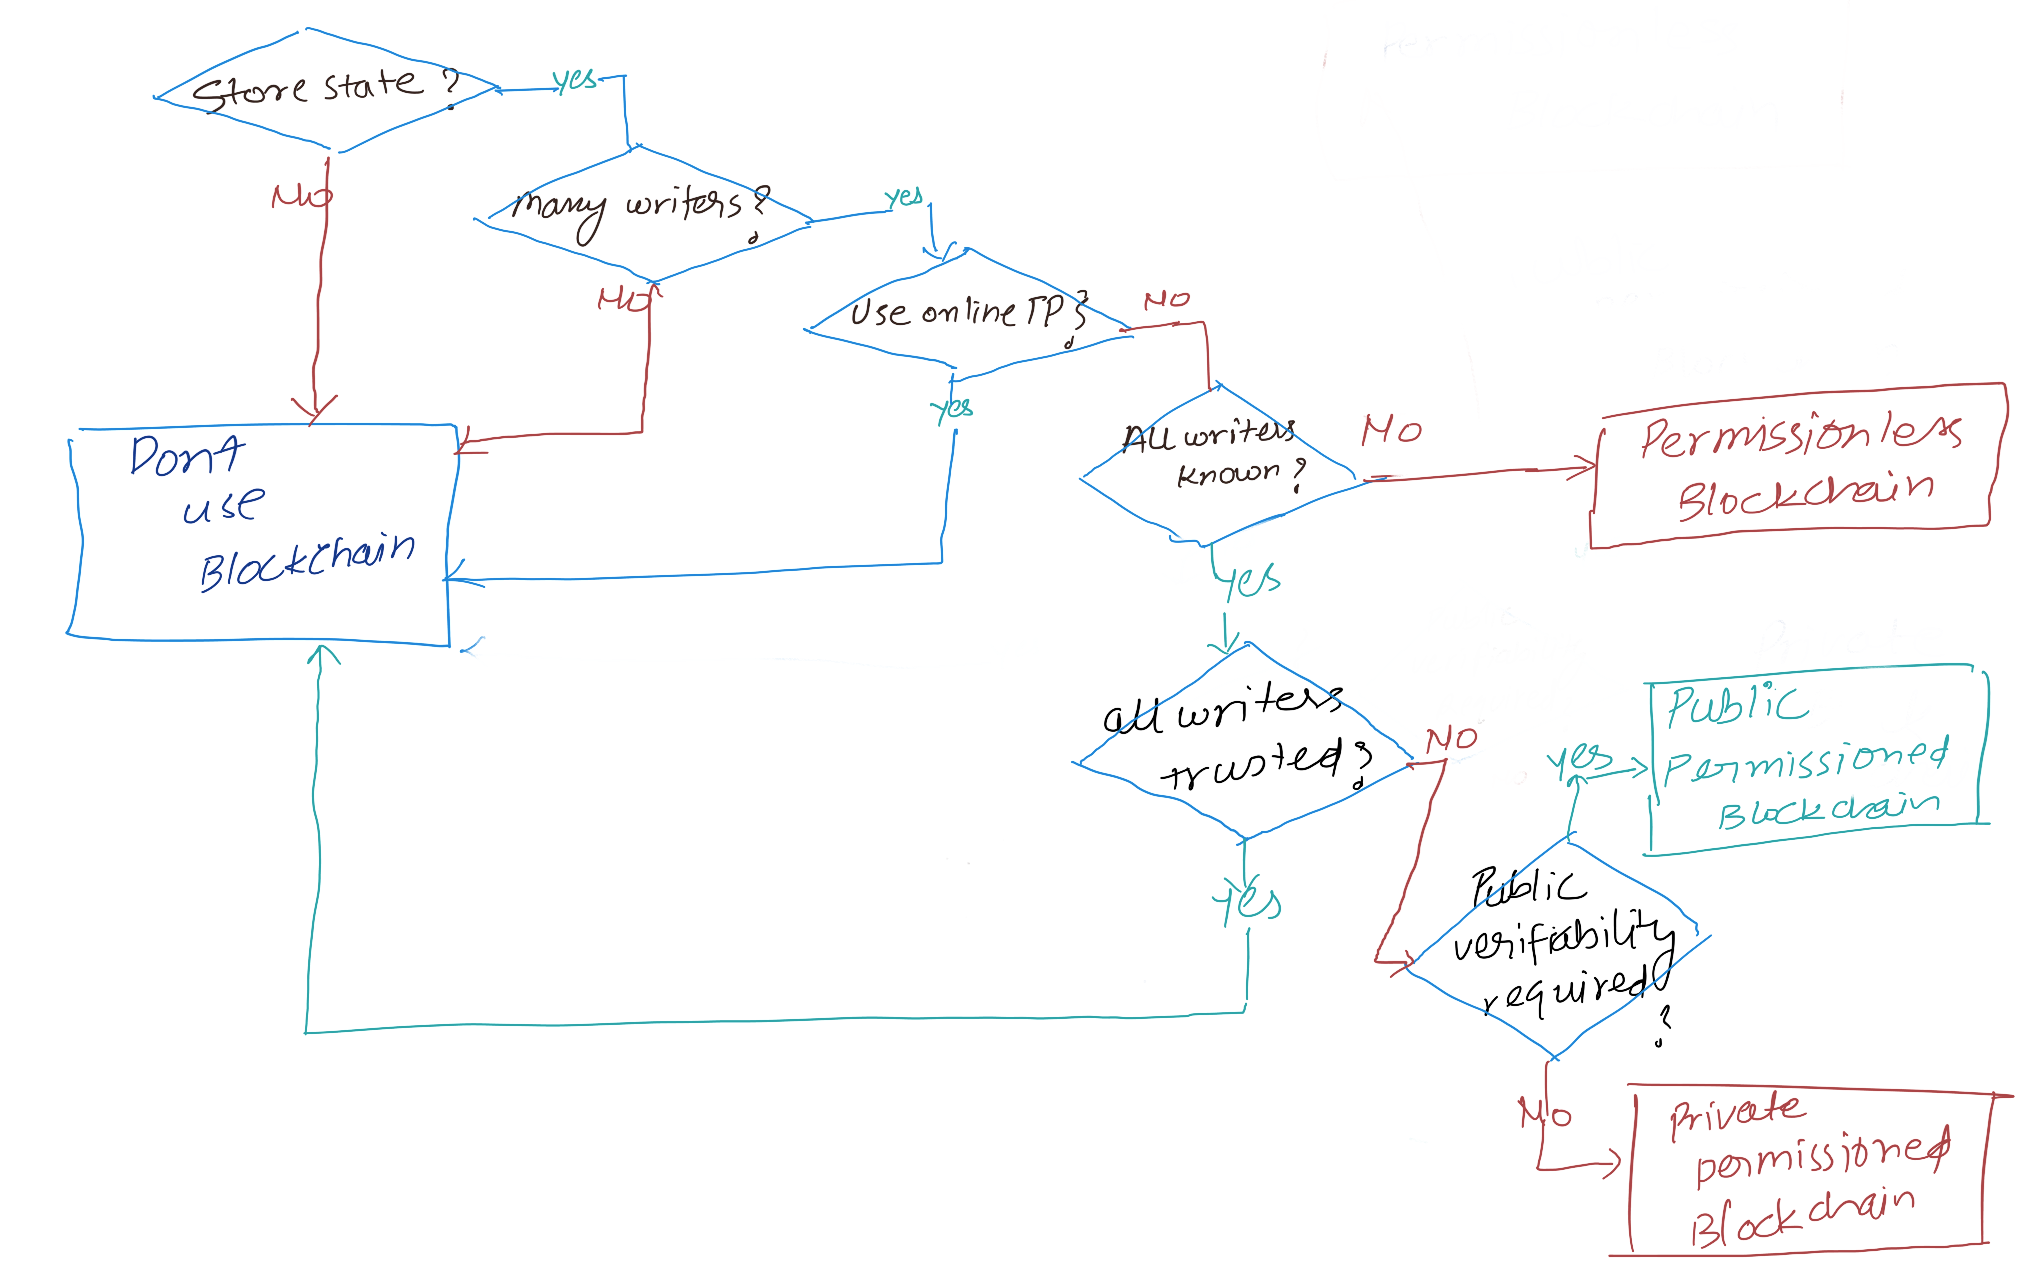 Store state ?
yes
NO
many writers?
yes
NO
Use online TP?
NO
yes
All writers
known ?
NO
Permissionless
Blockchain
Dont
use
Blockchain
yes
all writers
trusted?
NO
yes
Public
Permissioned
Blockchain
yes
Public
verifiability
required
?
NO
Private
permissioned
Blockchain